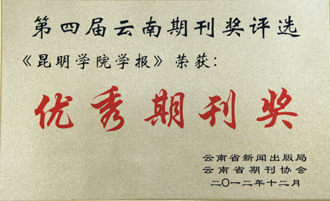 第四届云南期刊奖评选
《昆明学院学报》荣获：
优秀期刊奖
云南省新闻出版局
云南省期刊协会
二〇一二年十二月